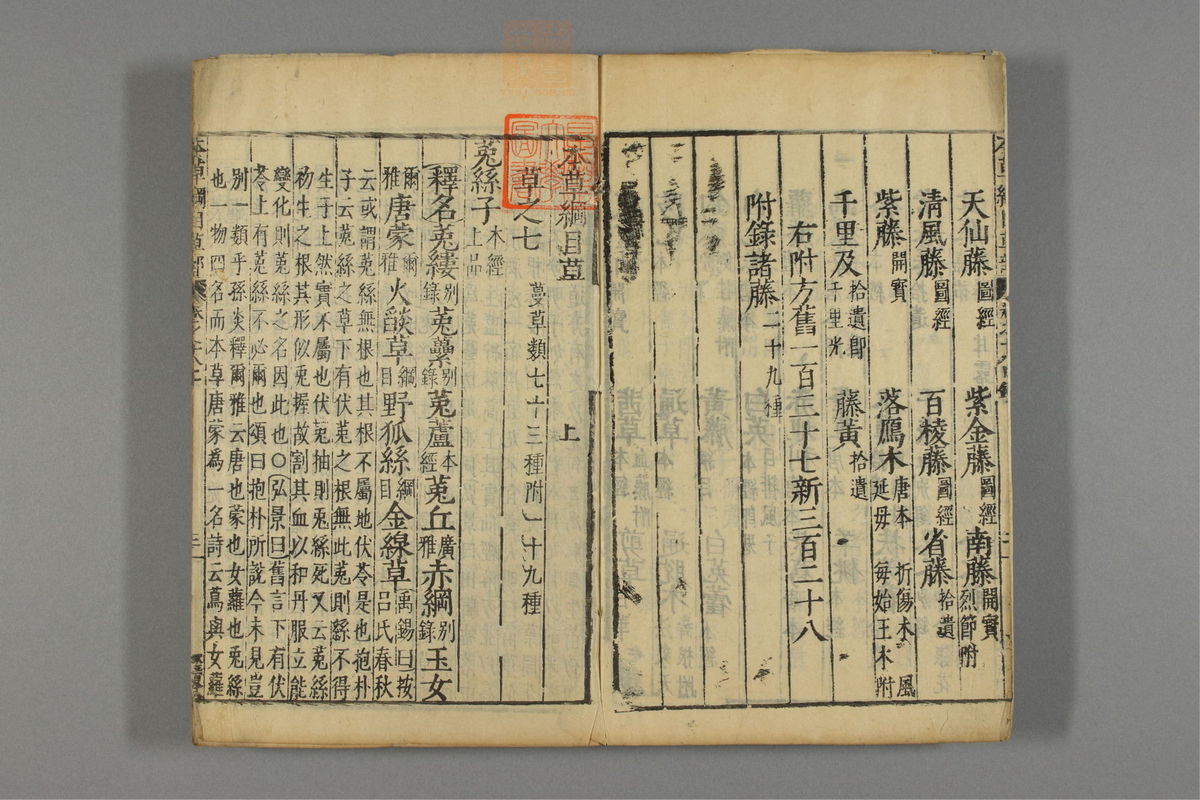 天仙藤圖經 紫金藤圖經 南藤開寶烈節附
清風藤圖經 百棱藤圖經 省藤拾遺
紫藤開寶 落鴈木唐本 折傷木 風延母 每始王木附
千里及拾遺即千里光 藤黃拾遺
右附方舊一百三十七新三百二十八
附錄諸藤二十九種
本草綱目草
草之七 蔓草類七十三種附一十九種 上
菟絲子本經上品
釋名菟縷別錄菟纍別錄菟蘆本經菟丘廣雅赤綱別錄玉女
爾雅唐蒙爾雅火燄草綱目野狐絲綱目金線草禹錫曰按呂氏春秋
云或謂菟絲無根也其根不屬地伏苓是也抱朴
子云菟絲之草下有伏菟之根無此菟則絲不得
生于上然實不屬也伏菟抽則菟絲死又云菟絲
初生之根其形似兎握故割其血以和丹服立能
變化則菟絲之名因此也○弘景曰舊言下有伏
苓上有菟絲不必爾也頌曰抱朴所說今未見豈
別一類乎孫炎釋爾雅云唐也蒙也女蘿也兎絲
也一物四名而本草唐蒙為一名詩云蔦與女蘿